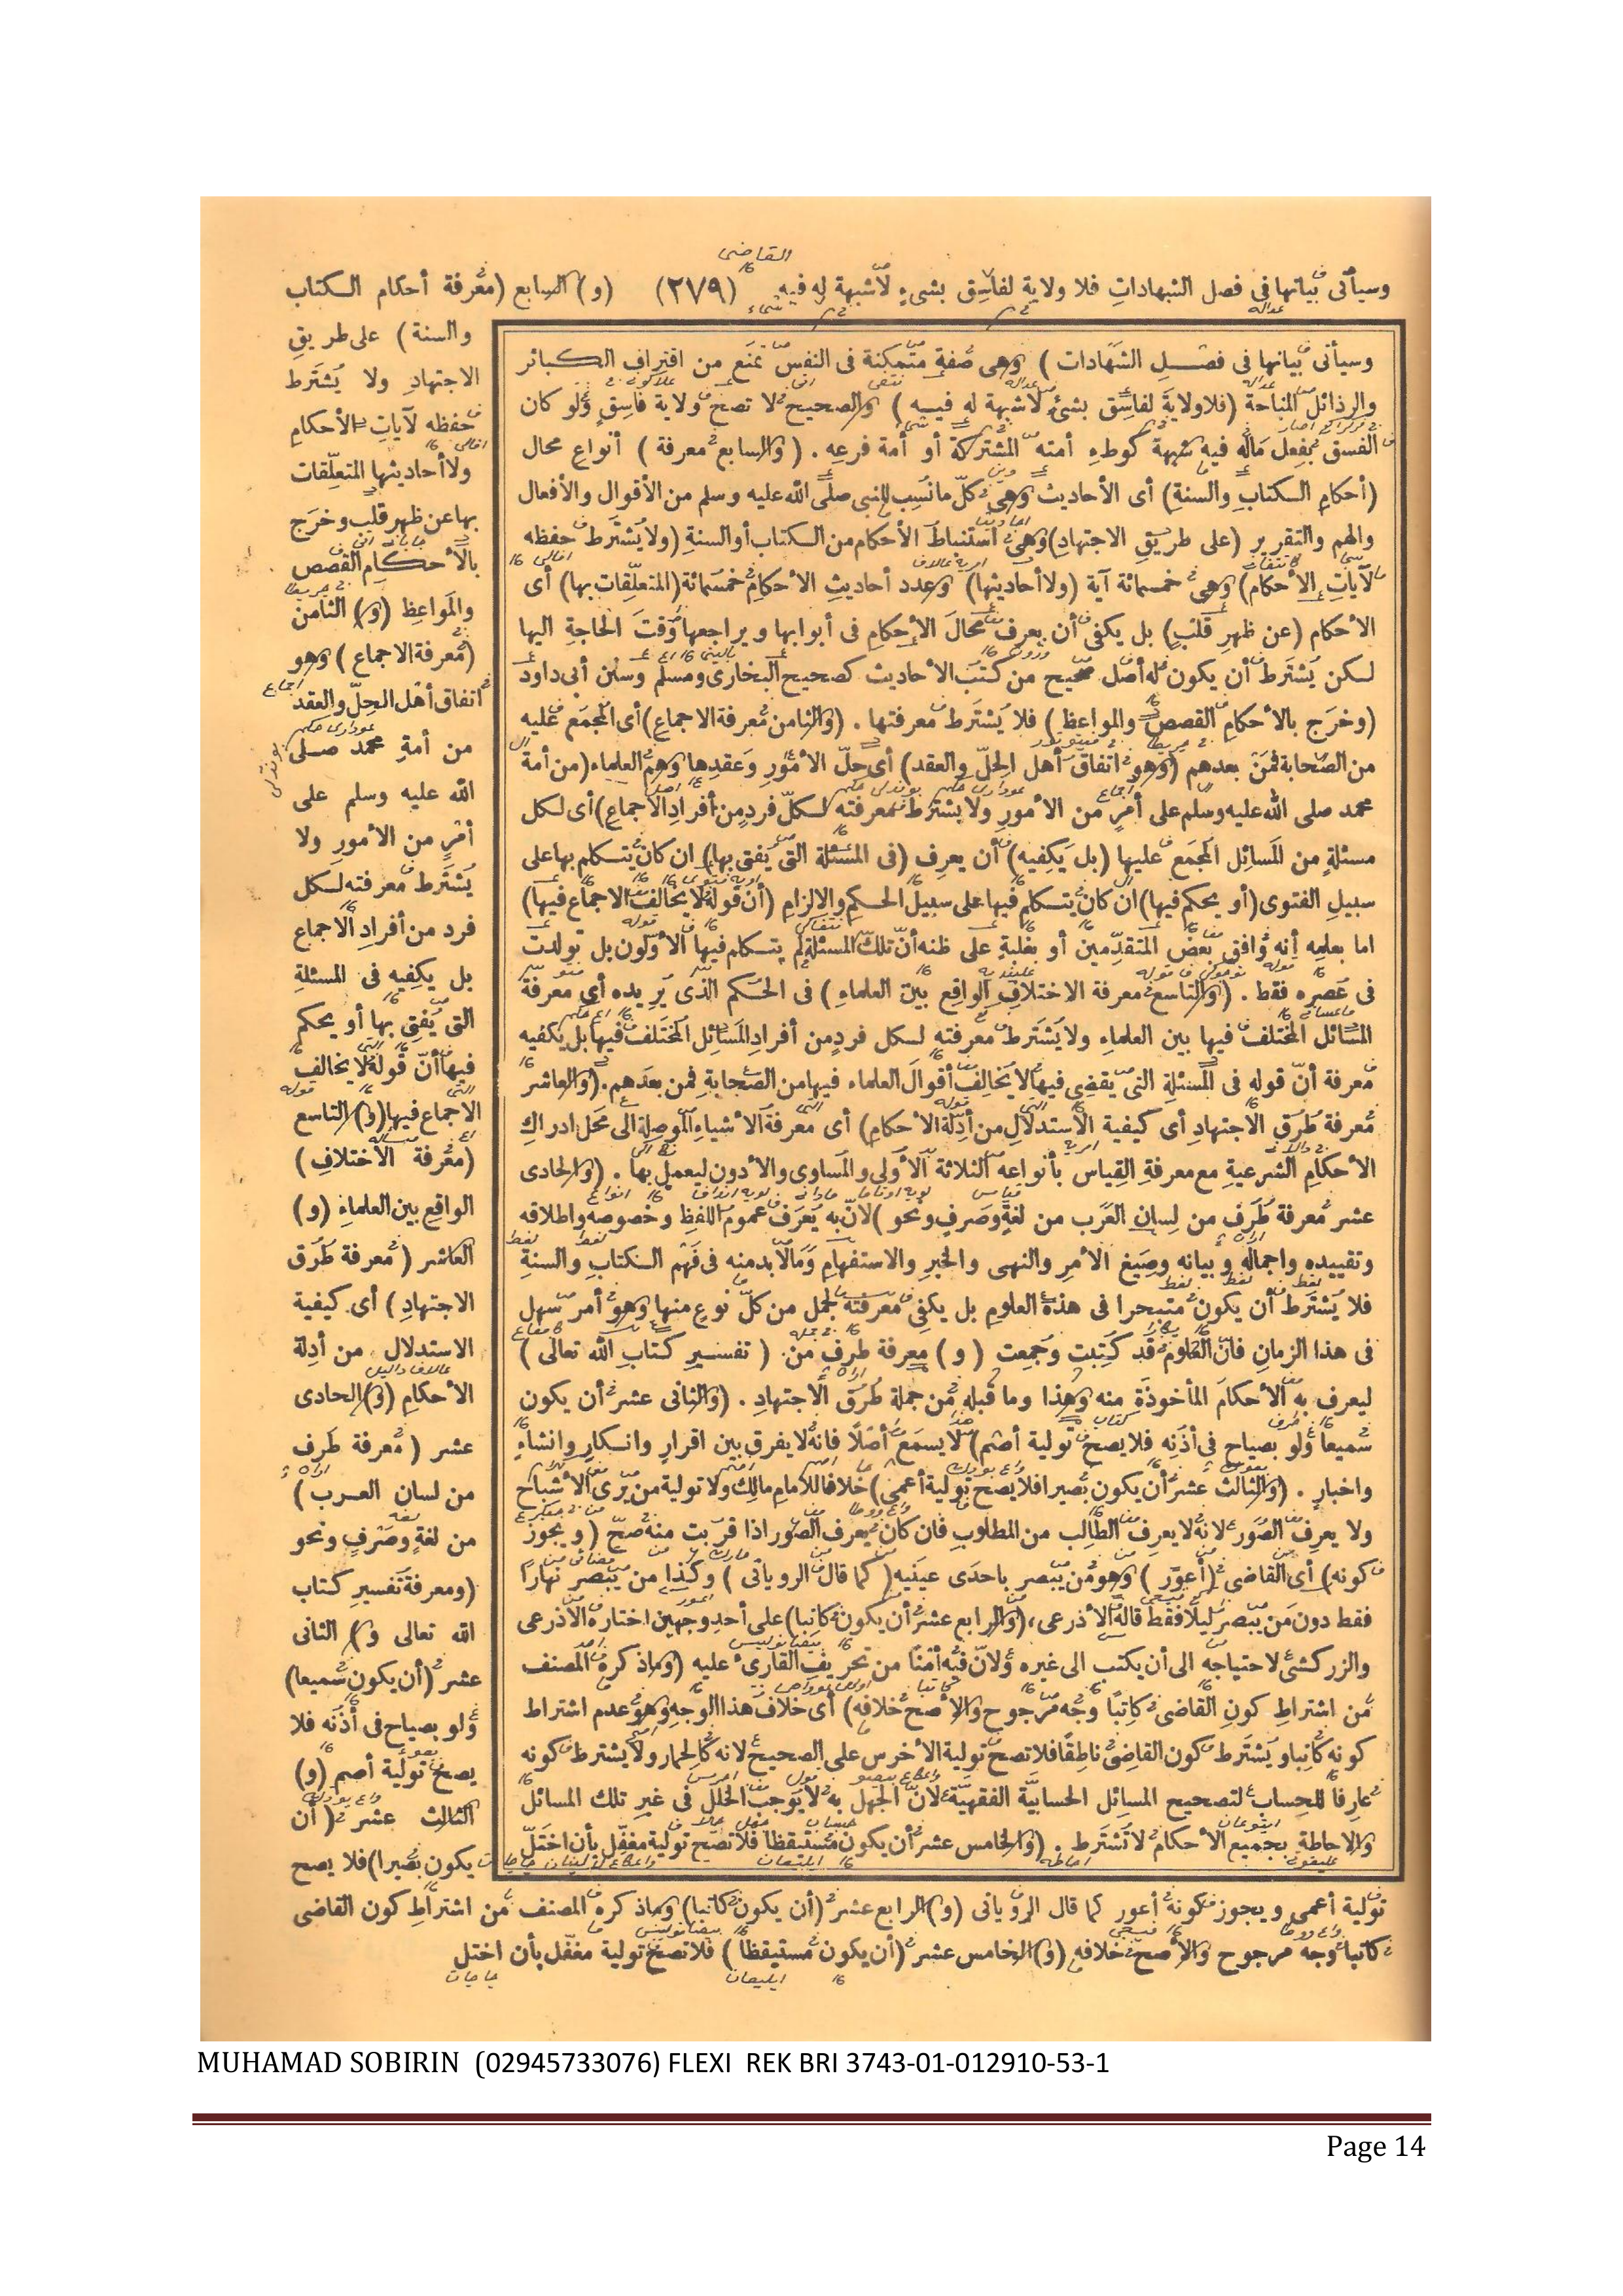 وسيأتى بيانها فى فصل الشهادات فلا ولاية لفاسق بشىء لا شبهة له فيه (٢٧٩) (و) السابع (معرفة أحكام الكتاب
والسنة) على طريق
الاجتهاد ولا يشترط
حفظه لآيات الأحكام
ولا أحاديثها المتعلقات
بها عن ظهر قلب وخرج
بالأحكام القصص
والمواعظ (و) الثامن
(معرفة الاجماع) وهو
اتفاق أهل الحل والعقد
من أمة محمد صلى
الله عليه وسلم على
أمر من الأمور ولا
يشترط معرفته لكل
فرد من أفراد الاجماع
بل يكفيه فى المسئلة
التى يفتى بها أو يحكم
فيها أن قوله لا يخالف
الاجماع فيها (و) التاسع
(معرفة الاختلاف)
الواقع بين العلماء (و)
العاشر (معرفة طرق
الاجتهاد) أى كيفية
الاستدلال من أدلة
الأحكام (و) الحادى
عشر (معرفة طرف
من لسان العرب)
من لغة وصرف ونحو
(ومعرفة تفسير كتاب
الله تعالى و) الثانى
عشر (أن يكون سميعا)
ولو بصياح فى أذنه فلا
يصح تولية أصم (و)
الثالث عشر (أن
يكون بصيرا) فلا يصح
تولية أعمى ويجوز كونه أعور كما قال الرويانى (و) الرابع عشر (أن يكون كاتبا) وما ذكره المصنف من اشتراط كون القاضى
كاتبا وجه مرجوح والأصح خلافه (و) الخامس عشر (أن يكون مستيقظا) فلا تصح تولية مغفل بأن اختل
وسيأتى بيانها فى فصل الشهادات) وهى صفة متمكنة فى النفس تمنع من اقتراف الكبائر
والرذائل المباحة (فلا ولاية لفاسق بشىء لا شبهة له فيه) والصحيح لا تصح ولاية فاسق ولو كان
الفسق بفعل ماله فيه شبهة كوطء أمته المشتركة أو أمة فرعه. (والسابع معرفة) أنواع محال
(أحكام الكتاب والسنة) أى الأحاديث وهى كل ما نسب للنبى صلى الله عليه وسلم من الأقوال والأفعال
والهم والتقرير (على طريق الاجتهاد) وهى استنباط الأحكام من الكتاب أو السنة (ولا يشترط حفظه
لآيات الأحكام) وهى خمسمائة آية (ولا أحاديثها) وعدد أحاديث الأحكام خمسمائة (المتعلقات بها) أى
الأحكام (عن ظهر قلب) بل يكفى أن يعرف محال الأحكام فى أبوابها ويراجعها وقت الحاجة اليها
لكن يشترط أن يكون له أصل صحيح من كتب الأحاديث كصحيح البخارى ومسلم وسنن أبى داود
(وخرج بالأحكام القصص والمواعظ) فلا يشترط معرفتها. (والثامن معرفة الاجماع) أى المجمع عليه
من الصحابة فمن بعدهم (وهو اتفاق أهل الحل والعقد) أى حل الأمور وعقدها وهم العلماء (من أمة
محمد صلى الله عليه وسلم على أمر من الأمور ولا يشترط معرفته لكل فرد من أفراد الاجماع) أى لكل
مسئلة من المسائل المجمع عليها (بل يكفيه) أن يعرف (فى المسئلة التى يفتى بها) ان كان يتكلم بها على
سبيل الفتوى (أو يحكم فيها) ان كان يتكلم فيها على سبيل الحكم والالزام (أن قوله لا يخالف الاجماع فيها)
اما بعلمه أنه وافق بعض المتقدمين أو بغلبة على ظنه أن تلك المسئلة لم يتكلم فيها الأولون بل تولدت
فى عصره فقط. (والتاسع معرفة الاختلاف الواقع بين العلماء) فى الحكم الذى يريده أى معرفة
المسائل المختلف فيها بين العلماء ولا يشترط معرفته لكل فرد من أفراد المسائل المختلف فيها بل يكفيه
معرفة أن قوله فى المسئلة التى يقضى فيها لا يخالف أقوال العلماء فيها من الصحابة فمن بعدهم. (والعاشر
معرفة طرق الاجتهاد أى كيفية الاستدلال من أدلة الأحكام) أى معرفة الأشياء الموصلة الى محل ادراك
الأحكام الشرعية مع معرفة القياس بأنواعه الثلاثة الأولى والمساوى والأدون ليعمل بها. (والحادى
عشر معرفة طرف من لسان العرب من لغة وصرف ونحو) لأن به يعرف عموم اللفظ وخصوصه واطلاقه
وتقييده واجماله وبيانه وصيغ الأمر والنهى والخبر والاستفهام وما لا بد منه فى فهم الكتاب والسنة
فلا يشترط أن يكون متبحرا فى هذه العلوم بل يكفى معرفته لجمل من كل نوع منها وهو أمر سهل
فى هذا الزمان فان العلوم قد كتبت وجمعت (و) معرفة طرف من (تفسير كتاب الله تعالى)
ليعرف به الأحكام المأخوذة منه وهذا وما قبله من جملة طرق الاجتهاد. (والثانى عشر أن يكون
سميعا ولو بصياح فى أذنه فلا يصح تولية أصم) لا يسمع أصلا فانه لا يفرق بين اقرار وانكار وانشاء
واخبار. (والثالث عشر أن يكون بصيرا فلا يصح تولية أعمى) خلافا للامام مالك ولا تولية من يرى الأشباح
ولا يعرف الصور لأنه لا يعرف الطالب من المطلوب فان كان يعرف الصور اذا قربت منه صح (ويجوز
كونه) أى القاضى (أعور) وهو من يبصر باحدى عينيه (كما قال الرويانى) وكذا من يبصر نهارا
فقط دون من يبصر ليلا فقط قاله الأذرعى، (والرابع عشر أن يكون كاتبا) على أحد وجهين اختاره الأذرعى
والزركشى لاحتياجه الى أن يكتب الى غيره ولأن فيه أمنا من تحريف القارىء عليه (وما ذكره المصنف
من اشتراط كون القاضى كاتبا وجه مرجوح والأصح خلافه) أى خلاف هذا الوجه وهو عدم اشتراط
كونه كاتبا ويشترط كون القاضى ناطقا فلا تصح تولية الأخرس على الصحيح لأنه كالحمار ولا يشترط كونه
عارفا للحساب لتصحيح المسائل الحسابية الفقهية لأن الجهل به لا يوجب الخلل فى غير تلك المسائل
والاحاطة بجميع الأحكام لا تشترط. (والخامس عشر أن يكون مستيقظا فلا تصح تولية مغفل بأن اختل
MUHAMAD SOBIRIN (02945733076) FLEXI REK BRI 3743-01-012910-53-1
Page 14